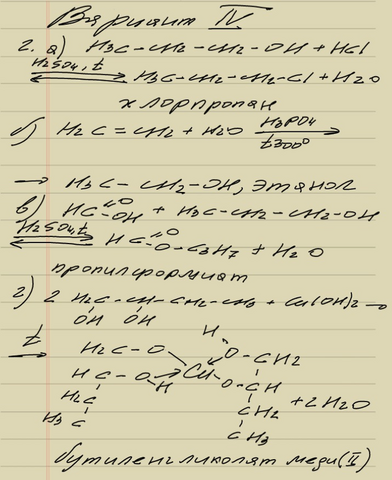 Вариант IV
2. а) H₃C-CH₂-CH₂-OH + HCl
H₂SO₄, t ⇌ H₃C-CH₂-CH₂-Cl + H₂O
хлорпропан
б) H₂C=CH₂ + H₂O H₃PO₄ t300° →
→ H₃C-CH₂-OH, этанол
в) HC=O-OH + H₃C-CH₂-CH₂-OH
H₂SO₄, t ⇌ HC=O-O-C₃H₇ + H₂O
пропилформиат
г) 2 H₂C-CH-CH₂-CH₃ + Cu(OH)₂ →
OH OH
t → H₂C-O H O-CH₂
HC-O Cu O-CH + 2H₂O
H₂C H CH₂
H₃C CH₃
бутиленгликолят меди(II)